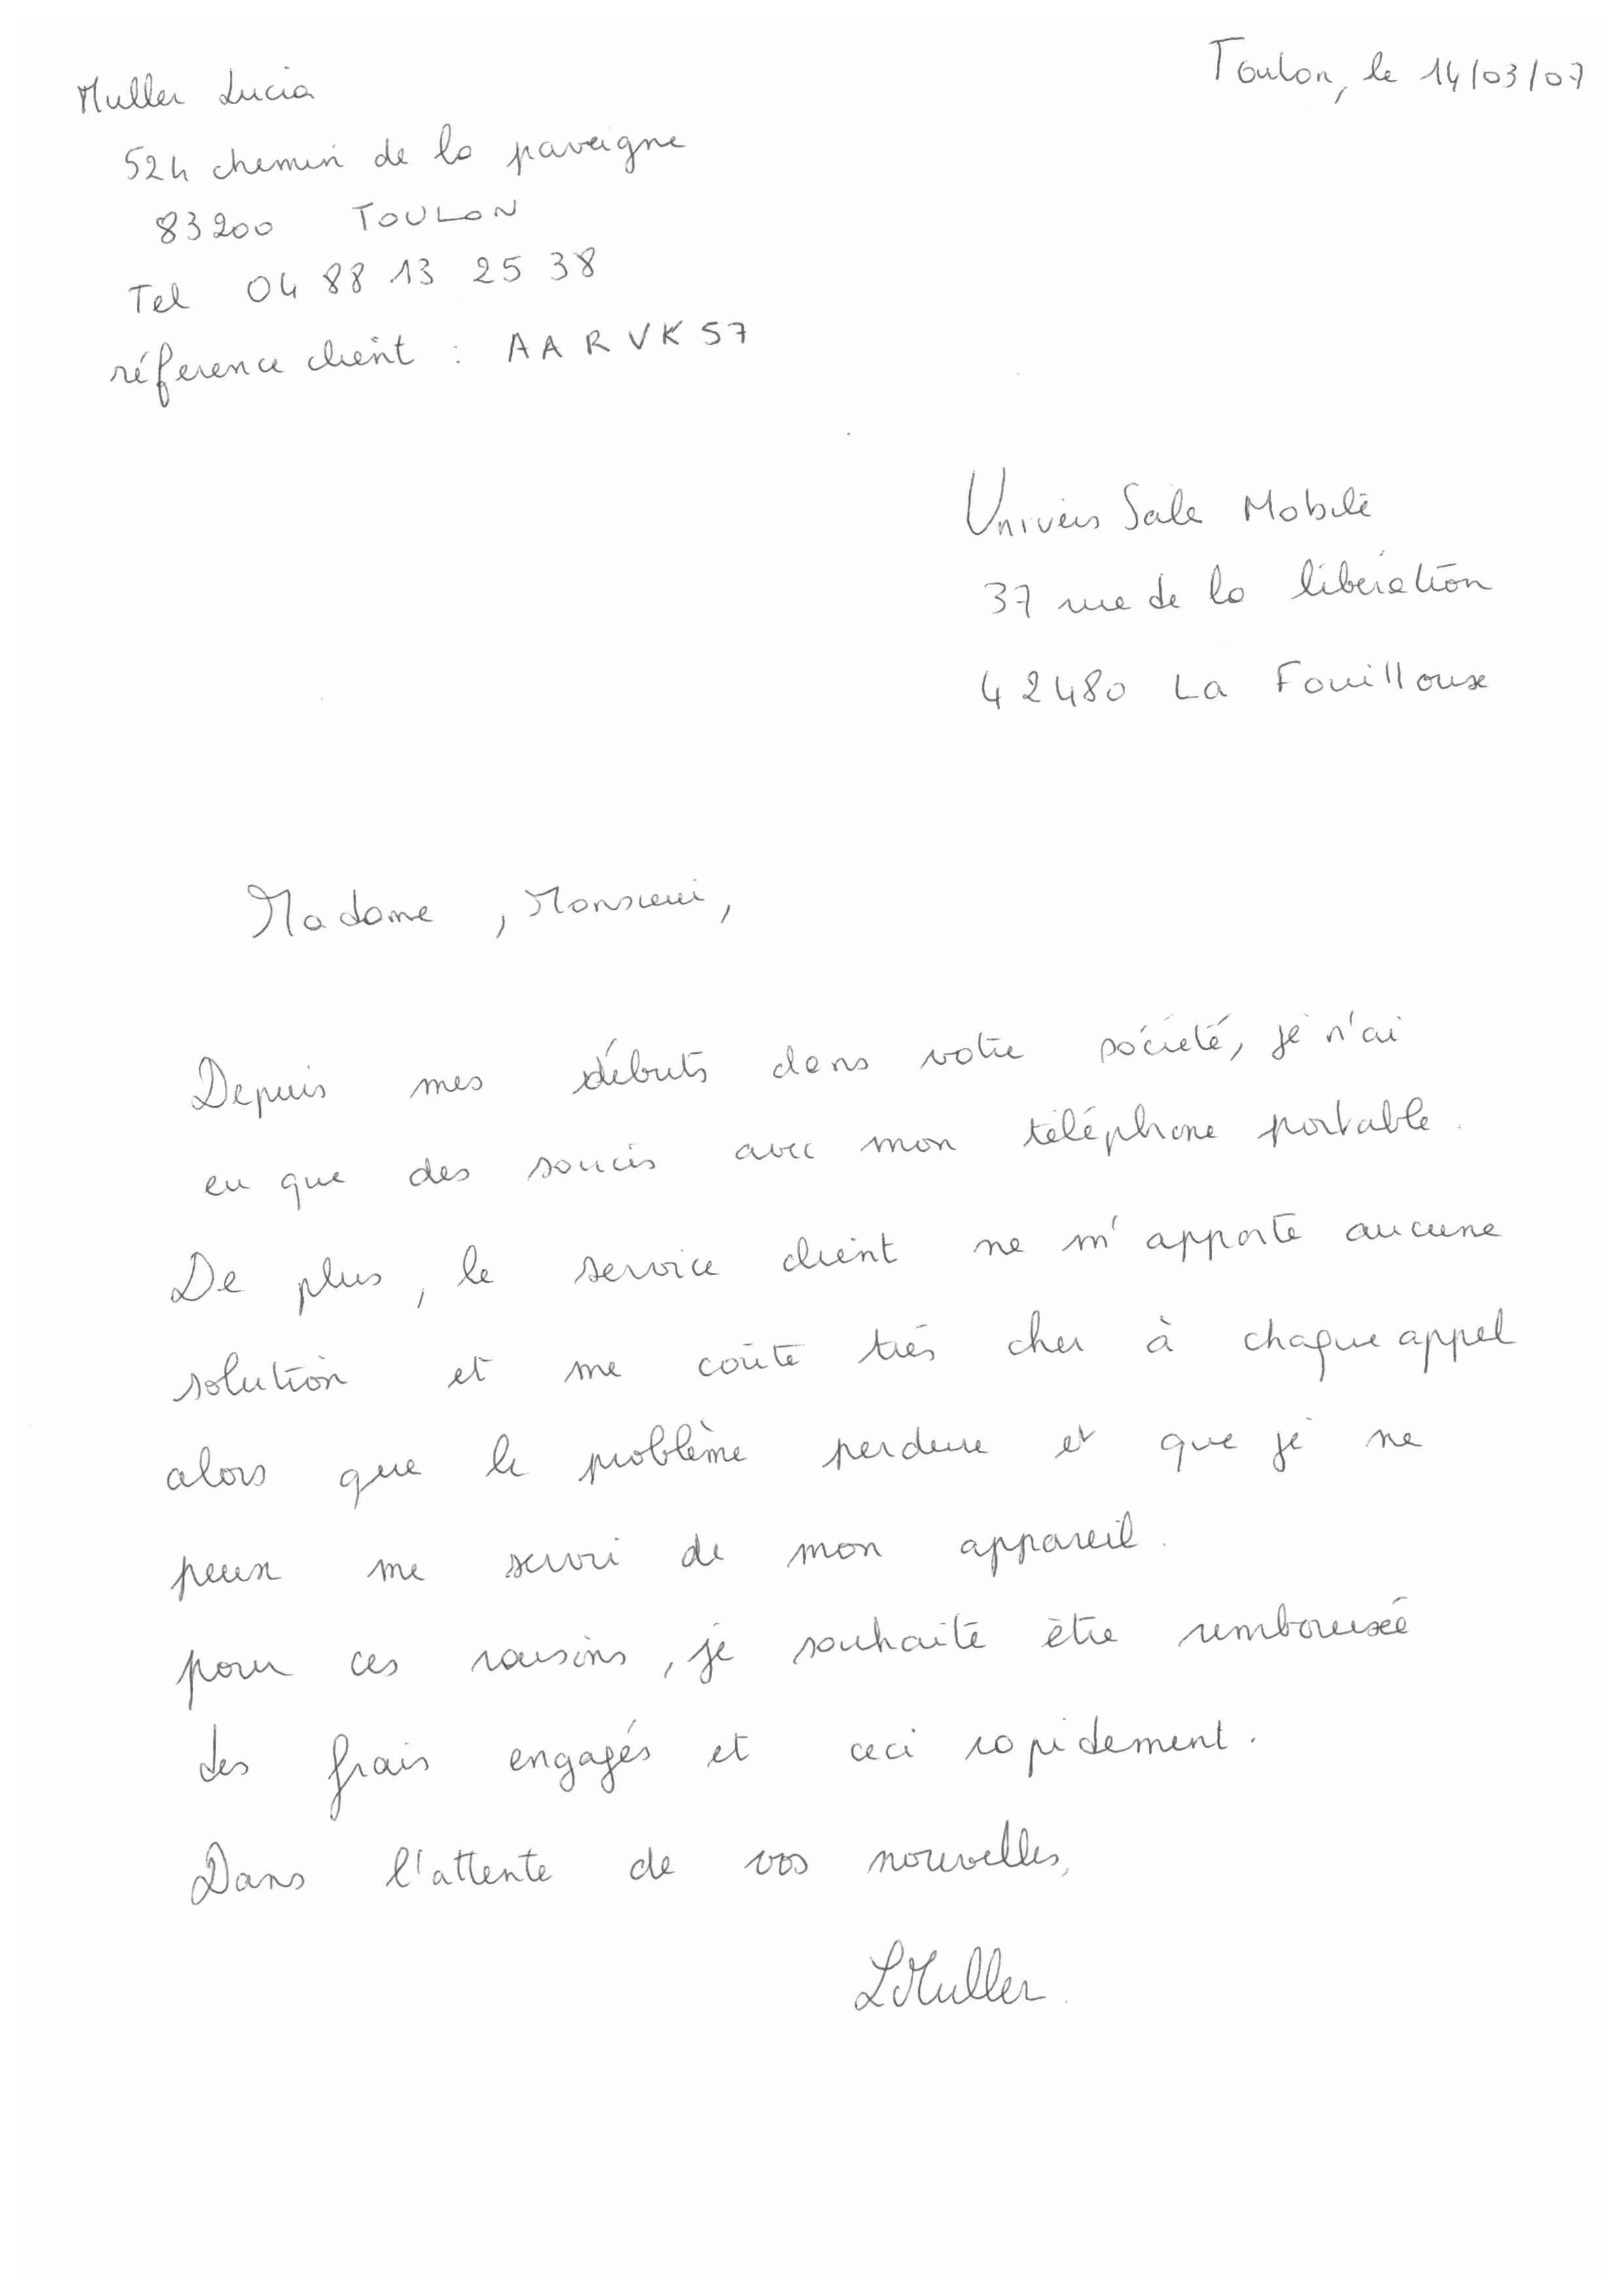 Muller Lucia
Toulon, le 14/03/07
524 chemin de la paveigne
83200 TOULON
Tel 04 88 13 25 38
référence client : AARVK57
Univers Sale Mobile
37 rue de la libération
42480 La Fouillouse
Madame, Monsieur,
Depuis mes débuts dans votre société, je n'ai
eu que des soucis avec mon téléphone portable.
De plus, le service client ne m'apporte aucune
solution et me coûte très cher à chaque appel
alors que le problème perdure et que je ne
peux me servir de mon appareil.
pour ces raisons, je souhaite être remboursée
des frais engagés et ceci rapidement.
Dans l'attente de vos nouvelles,
LMuller.